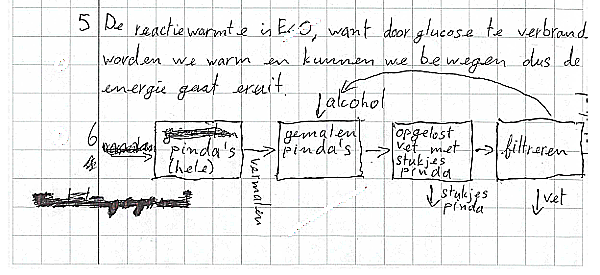 5 De reactiewarmte is E<0, want door glucose te verbrand
worden we warm en kunnen we bewegen dus de
energie gaat eruit.
alcohol
6
pinda's
(hele)
vermalen
gemalen
pinda's
opgelost
vet met
stukjes
pinda
stukjes
pinda
filtreren
vet